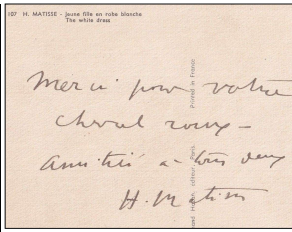 107 H. MATISSE - Jeune fille en robe blanche
The white dress
Merci pour votre
cheval rouge -
amitié à tous deux
H. Matisse
Printed in France
éditeur Paris